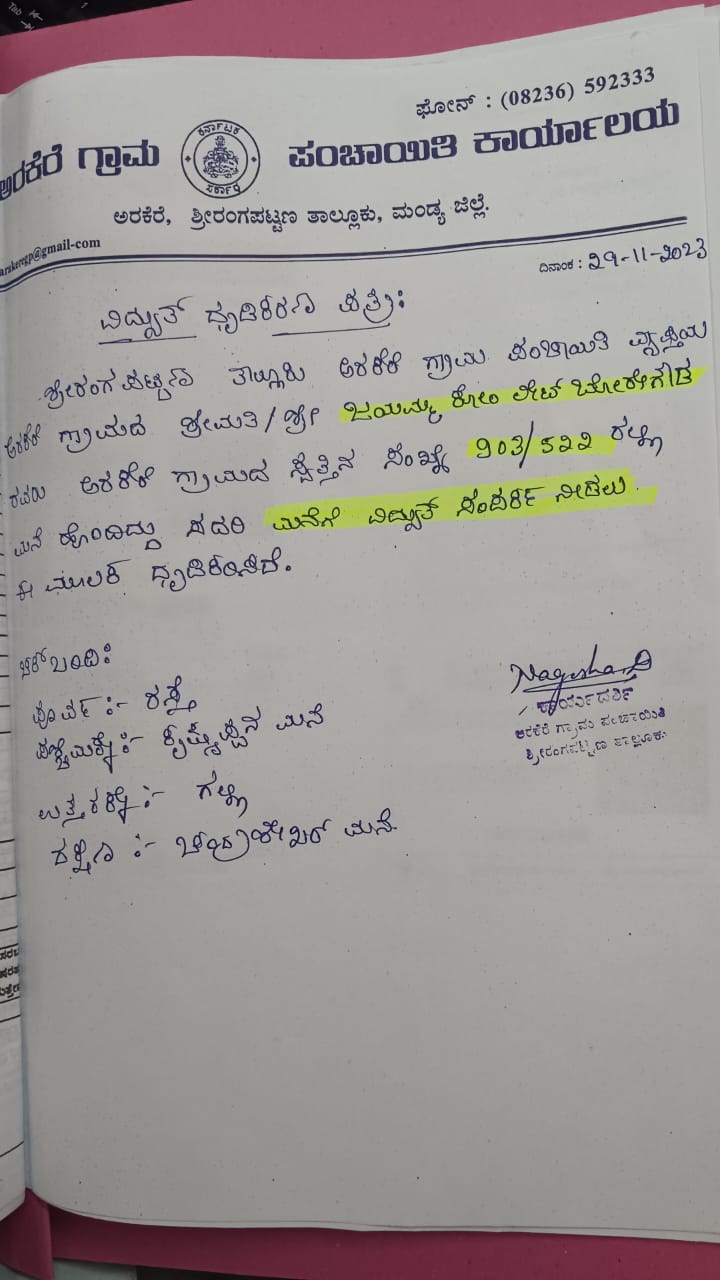 ಫೋನ್ : (08236) 592333
ಅರಕೆರೆ ಗ್ರಾಮ ಪಂಚಾಯಿತಿ ಕಾರ್ಯಾಲಯ
ಕರ್ನಾಟಕ
ಸರ್ಕಾರ
ಅರಕೆರೆ, ಶ್ರೀರಂಗಪಟ್ಟಣ ತಾಲ್ಲೂಕು, ಮಂಡ್ಯ ಜಿಲ್ಲೆ.
arakeregp@gmail-com
ದಿನಾಂಕ : 29-11-2023
ವಿದ್ಯುತ್ ಧೃಡಿಕರಣ ಪತ್ರ:
ಶ್ರೀರಂಗಪಟ್ಟಣ ತಾಲ್ಲೂಕು ಅರಕೆರೆ ಗ್ರಾಮ ಪಂಚಾಯಿತಿ ವ್ಯಾಪ್ತಿಯ
ಅರಕೆರೆ ಗ್ರಾಮದ ಶ್ರೀಮತಿ/ಶ್ರೀ ಜಯಮ್ಮ ಕೋಂ ಲೇಟ್ ಬೋರೇಗೌಡ
ರವರು ಅರಕೆರೆ ಗ್ರಾಮದ ಸ್ವತ್ತಿನ ಸಂಖ್ಯೆ 903/522 ರಲ್ಲಿ
ಮನೆ ಹೊಂದಿದ್ದು ಸದರಿ ಮನೆಗೆ ವಿದ್ಯುತ್ ಸಂಪರ್ಕ ನೀಡಲು
ಈ ಮೂಲಕ ಧೃಡಿಕರಿಸಿದೆ.
ಚೆಕ್ ಬಂದಿ:
ಪೂರ್ವ :- ರಸ್ತೆ
ಪಶ್ಚಿಮಕ್ಕೆ :- ಕೃಷ್ಣಪ್ಪನ ಮನೆ
ಉತ್ತರಕ್ಕೆ :- ಗಲ್ಲಿ
ದಕ್ಷಿಣ :- ಚಂದ್ರಶೇಖರ್ ಮನೆ.
Nagesha.D
ಕಾರ್ಯದರ್ಶಿ
ಅರಕೆರೆ ಗ್ರಾಮ ಪಂಚಾಯಿತಿ
ಶ್ರೀರಂಗಪಟ್ಟಣ ತಾಲ್ಲೂಕು.